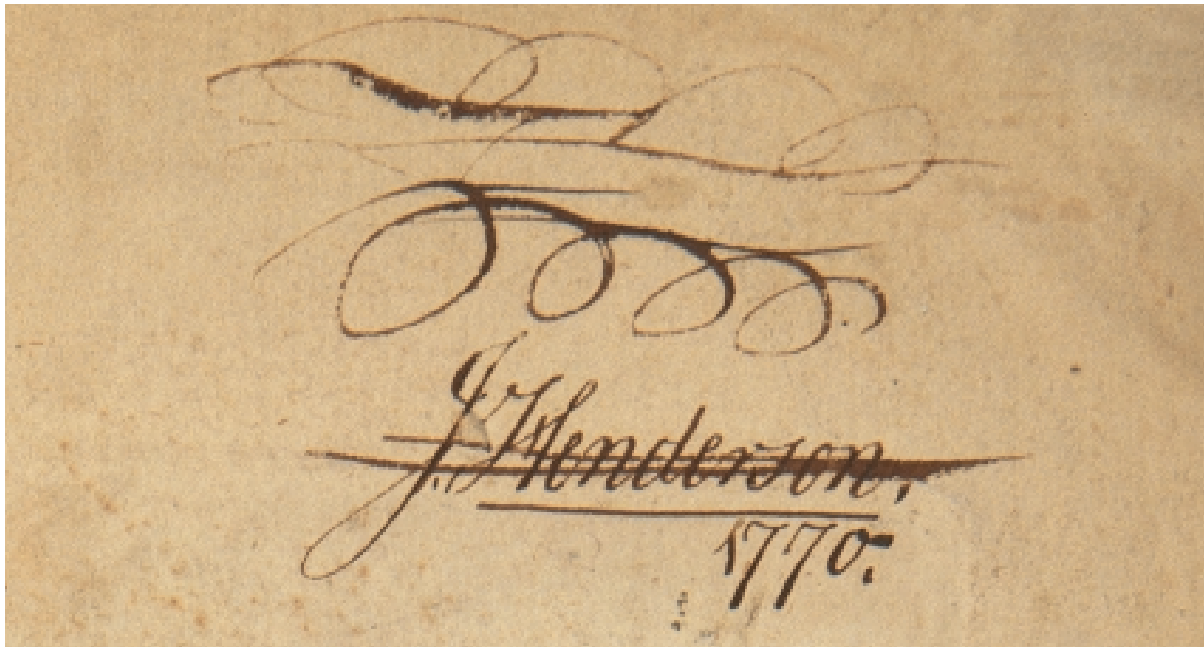 J. Henderson.
1770.